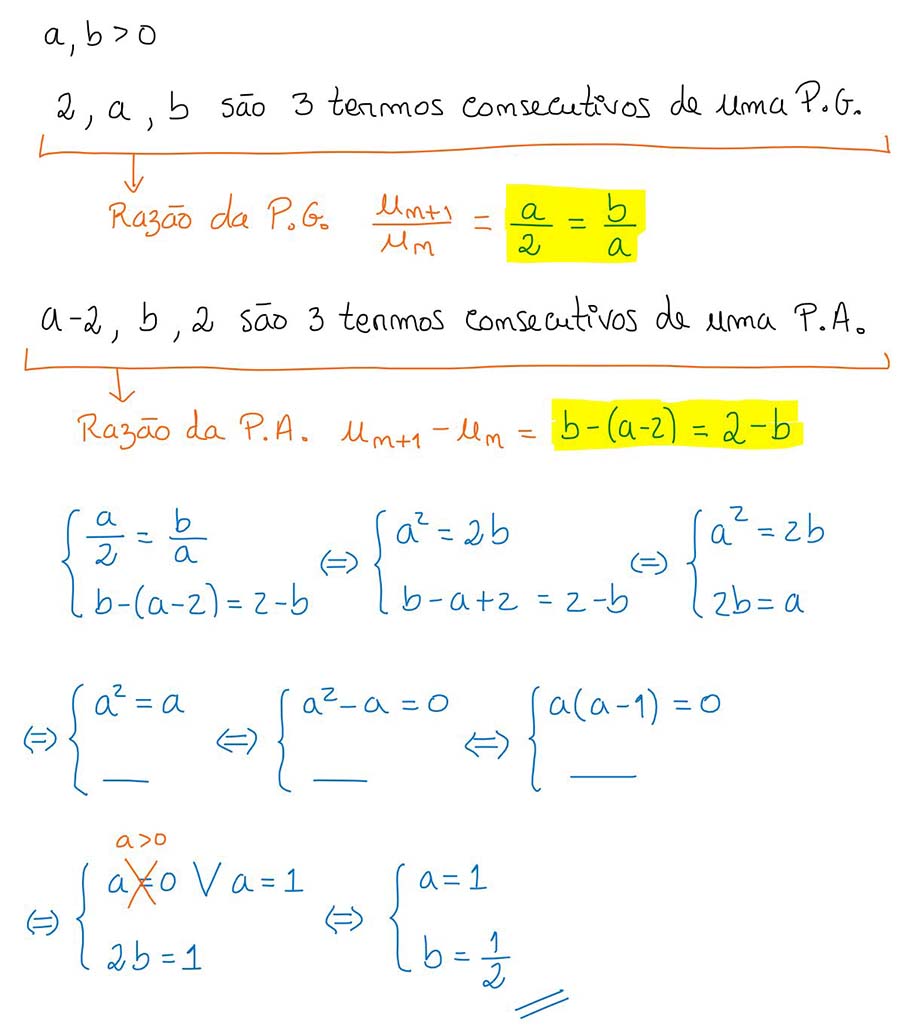 a, b > 0
2, a, b são 3 termos consecutivos de uma P.G.
Razão da P.G. u_{n+1}/u_n = a/2 = b/a
a-2, b, 2 são 3 termos consecutivos de uma P.A.
Razão da P.A. u_{n+1} - u_n = b-(a-2) = 2-b
{ a/2 = b/a ; b-(a-2) = 2-b (=) { a² = 2b ; b-a+2 = 2-b (=) { a² = 2b ; 2b = a
(=) { a² = a ; ___ (=) { a²-a = 0 ; ___ (=) { a(a-1) = 0 ; ___
a>0
(=) { a=0 V a=1 ; 2b=1 (=) { a=1 ; b = 1/2